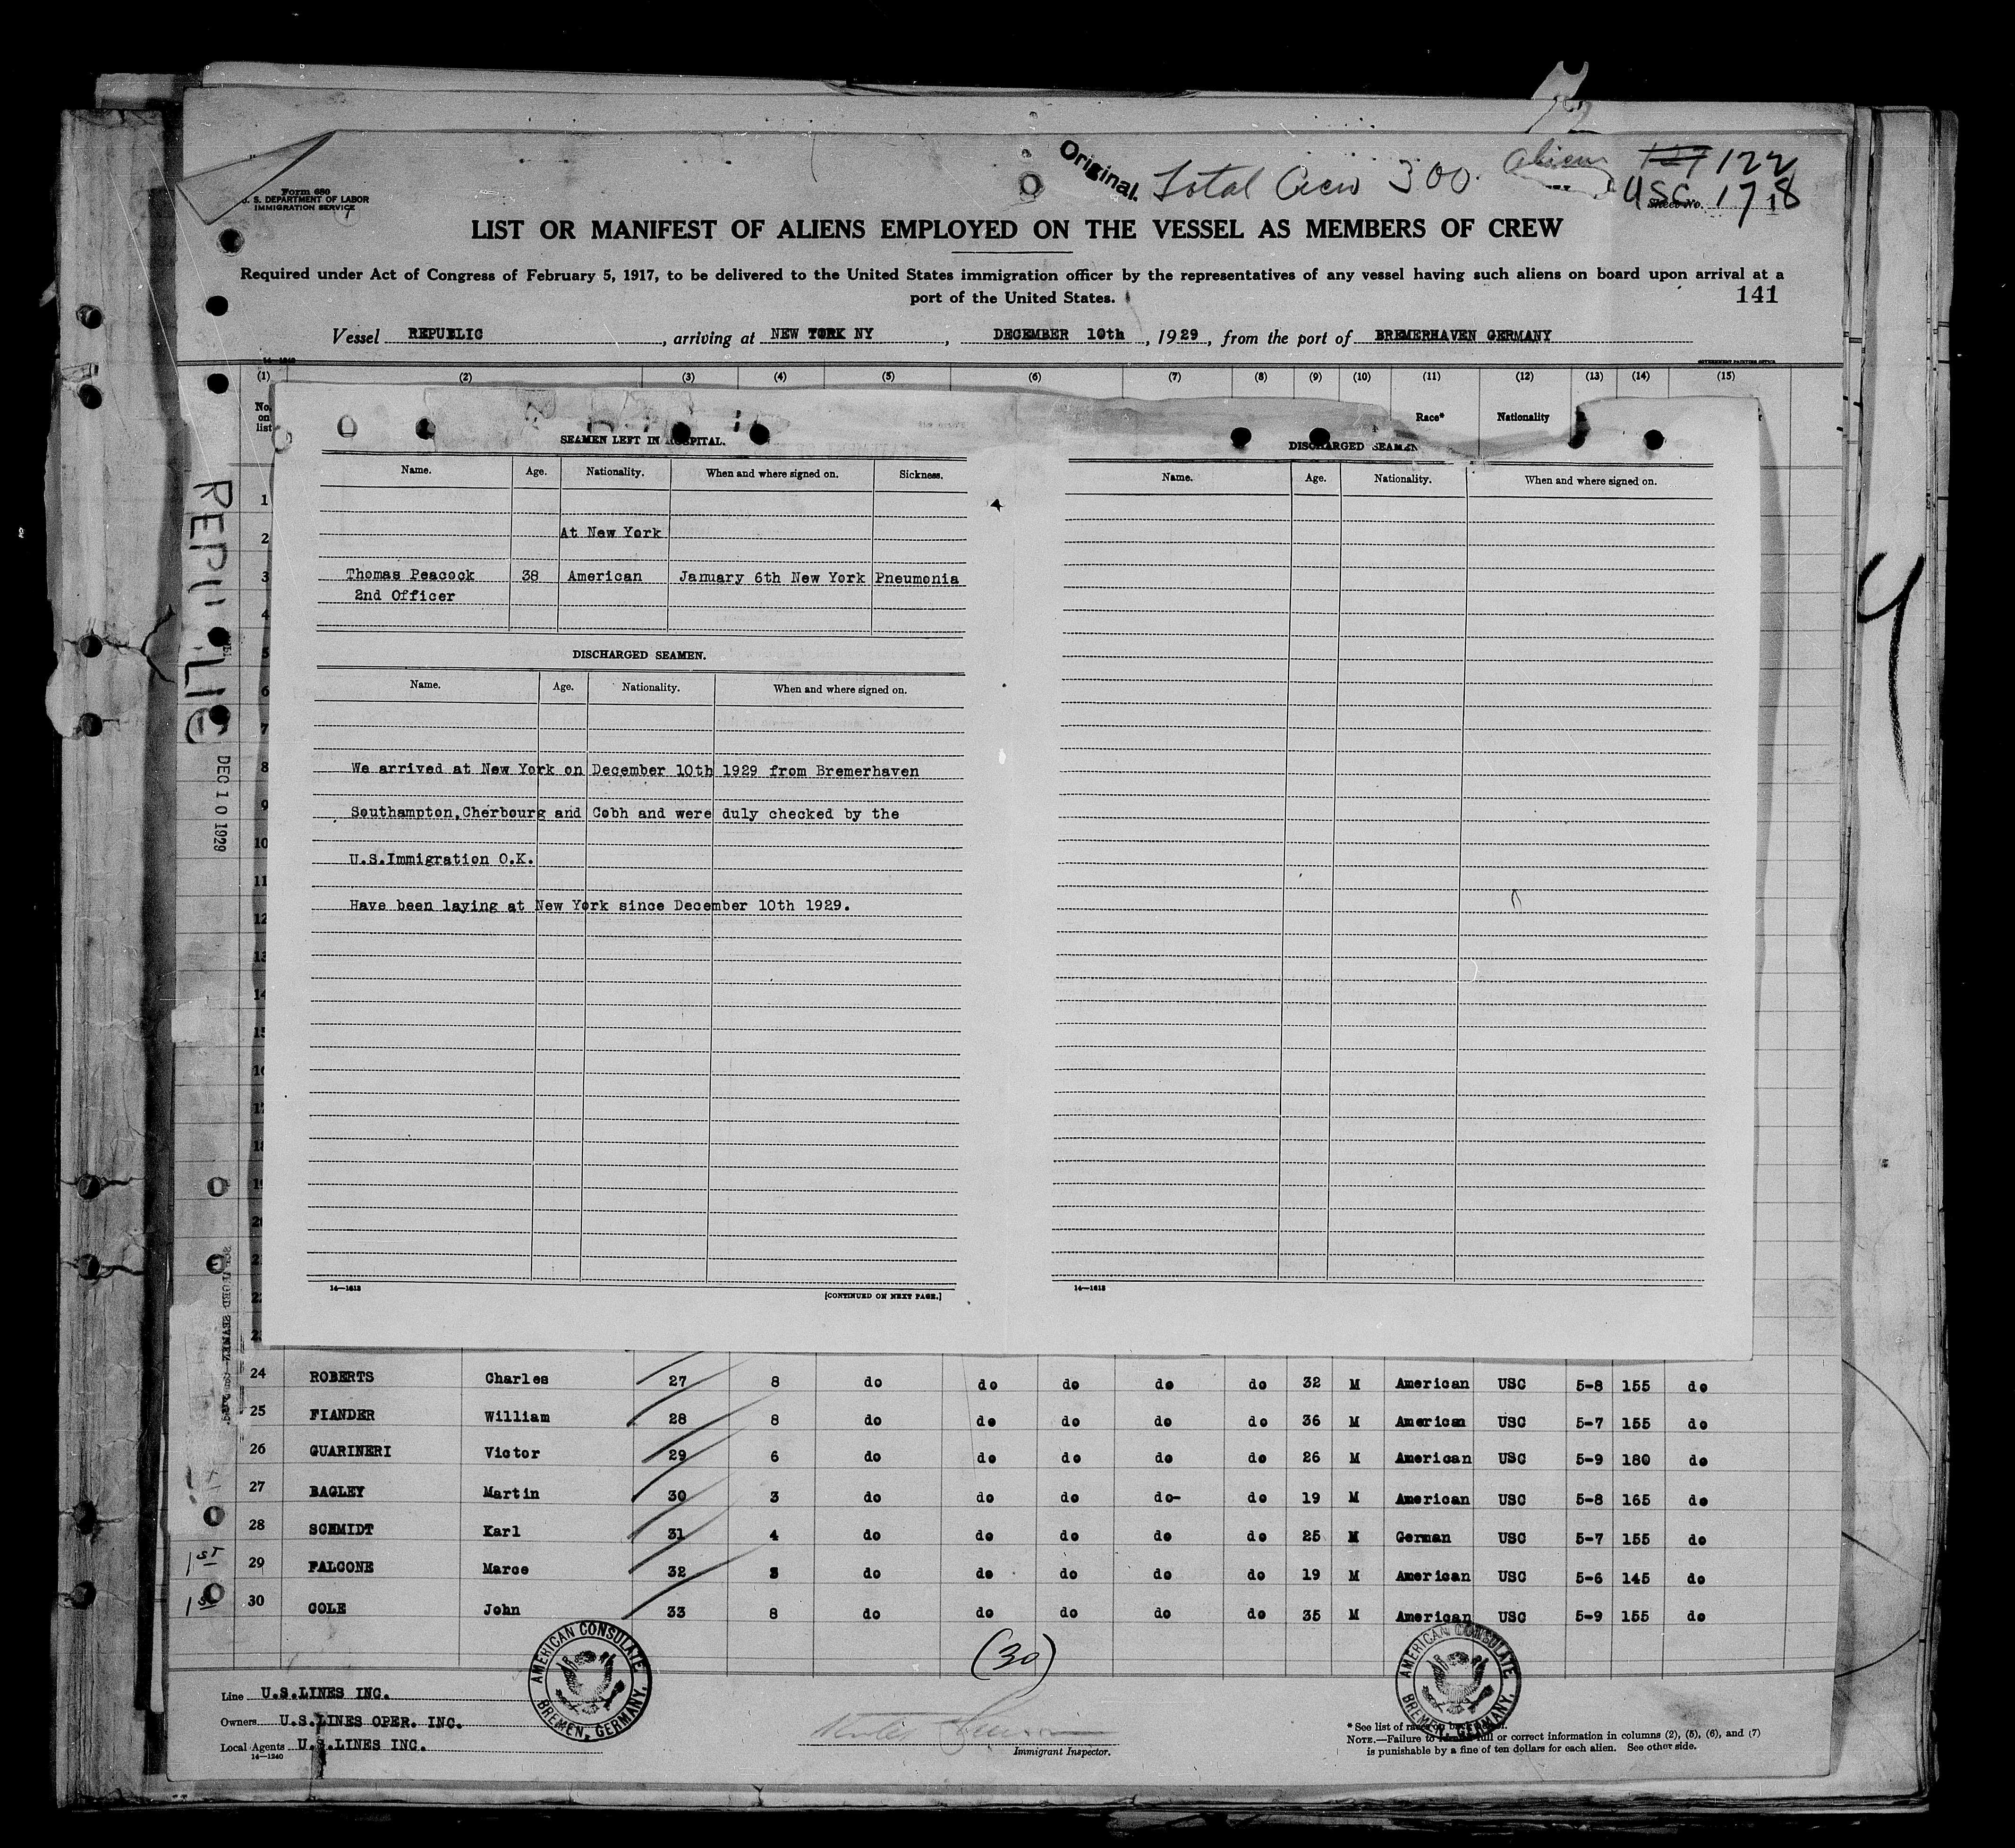 Form 680
U. S. DEPARTMENT OF LABOR
IMMIGRATION SERVICE
Original.
Total Crew 300
Aliens 127 122
USC. 178
Sheet No. 1
LIST OR MANIFEST OF ALIENS EMPLOYED ON THE VESSEL AS MEMBERS OF CREW
Required under Act of Congress of February 5, 1917, to be delivered to the United States immigration officer by the representatives of any vessel having such aliens on board upon arrival at a
port of the United States.
141
Vessel REPUBLIC , arriving at NEW YORK NY , DECEMBER 10th , 1929 , from the port of BREMERHAVEN GERMANY
14-1240
GOVERNMENT PRINTING OFFICE
(1) (2) (3) (4) (5) (6) (7) (8) (9) (10) (11) (12) (13) (14) (15)
No. on list Race* Nationality
REPUBLIC
DEC 10 1929
SEAMEN LEFT IN HOSPITAL.
Name. Age. Nationality. When and where signed on. Sickness.
At New York
Thomas Peacock 38 American January 6th New York Pneumonia
2nd Officer
DISCHARGED SEAMEN.
Name. Age. Nationality. When and where signed on.
We arrived at New York on December 10th 1929 from Bremerhaven
Southampton,Cherbourg and Cobh and were duly checked by the
U.S.Immigration O.K.
Have been laying at New York since December 10th 1929.
14—1618
[CONTINUED ON NEXT PAGE.]
DISCHARGED SEAMEN
Name. Age. Nationality. When and where signed on.
14—1618
1
2
3
4
5
6
7
8
9
10
11
12
13
14
15
16
17
18
19
20
21
22
23
24 ROBERTS Charles 27 8 do do do do do 32 M American USC 5-8 155 do
25 FIANDER William 28 8 do do do do do 36 M American USC 5-7 155 do
26 GUARINERI Victor 29 6 do do do do do 26 M American USC 5-9 180 do
27 BAGLEY Martin 30 3 do do do do- do 19 M American USC 5-8 165 do
28 SCHMIDT Karl 31 4 do do do do do 25 M German USC 5-7 155 do
1st 29 FALCONE Marce 32 3 do do do do do 19 M American USC 5-6 145 do
1st 30 COLE John 33 8 do do do do do 35 M American USC 5-9 155 do
(30)
AMERICAN CONSULATE
BREMEN, GERMANY.
AMERICAN CONSULATE
BREMEN, GERMANY.
Line U.S.LINES INC.
Owners U.S.LINES OPER. INC.
Local Agents U.S.LINES INC.
14—1240
Immigrant Inspector.
* See list of races on back hereof.
NOTE.—Failure to furnish full or correct information in columns (2), (5), (6), and (7)
is punishable by a fine of ten dollars for each alien. See other side.